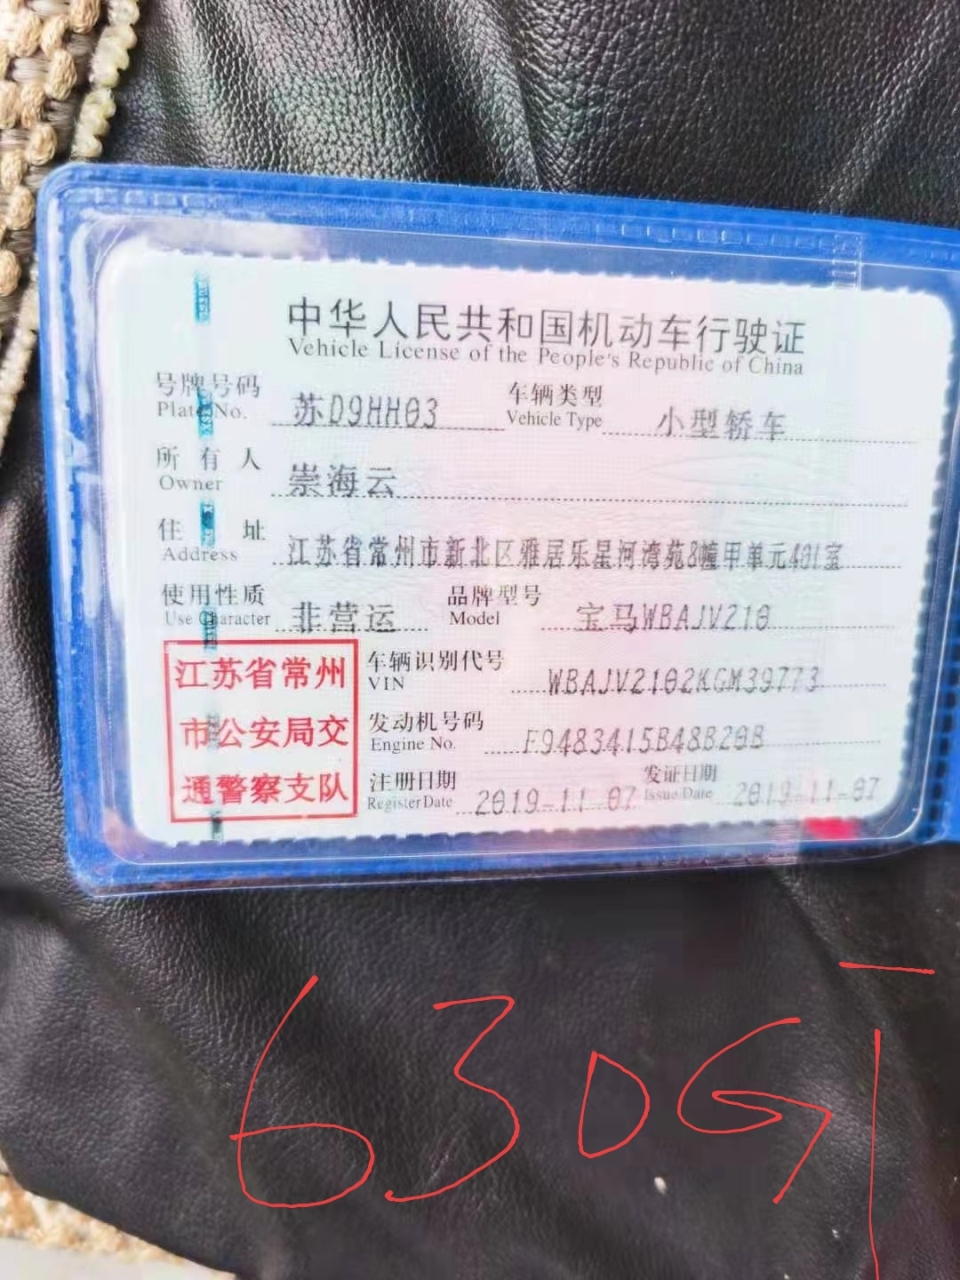 中华人民共和国机动车行驶证
Vehicle License of the People's Republic of China
号牌号码 苏D9HH03 车辆类型 小型轿车
Plate No. Vehicle Type
所有人 崇海云
Owner
住址 江苏省常州市新北区雅居乐星河湾苑8幢甲单元401室
Address
使用性质 非营运 品牌型号 宝马WBAJV210
Use Character Model
江苏省常州 车辆识别代号 WBAJV2102KGM39773
VIN
市公安局交 发动机号码 F9483415B48B20B
Engine No.
通警察支队 注册日期 2019-11-07 发证日期 2019-11-07
Register Date Issue Date
630GT